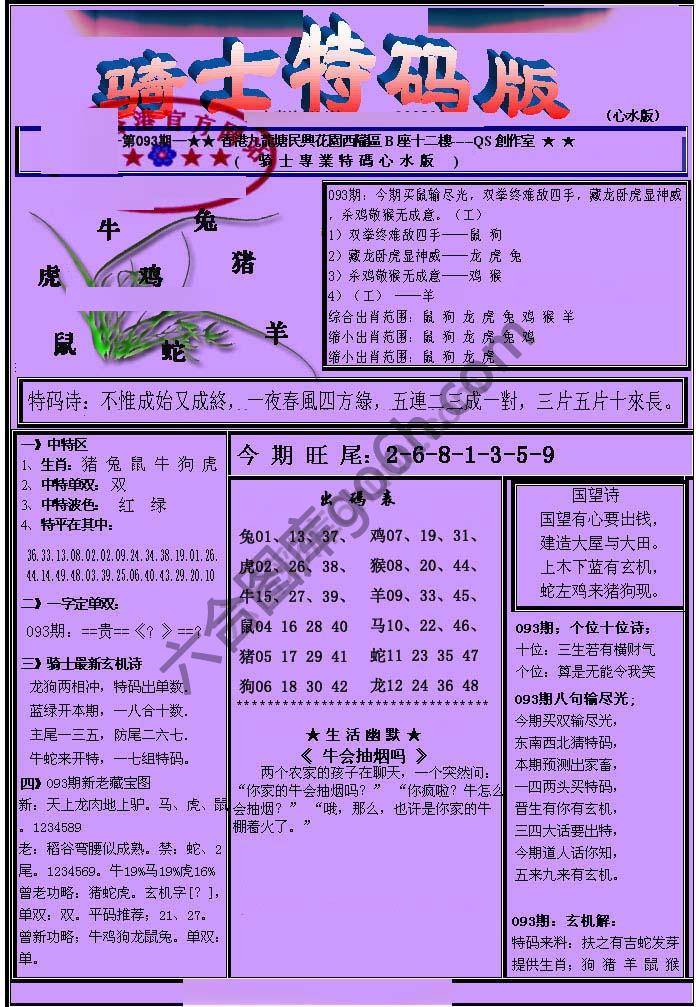 骑士特码版
（心水版）
第093期—★★ 香港九龍塘民興花園西福區 B 座十二樓----QS 創作室 ★ ★
( 骑士專業特碼心水版 )
牛 兔
虎 鸡 猪
鼠 蛇 羊
093期: 今期买鼠输尽光, 双拳终难敌四手, 藏龙卧虎显神威
, 杀鸡敬猴无成意。（工）
1）双拳终难敌四手——鼠 狗
2）藏龙卧虎显神威——龙 虎 兔
3）杀鸡敬猴无成意——鸡 猴
4）(工) ——羊
综合出肖范围: 鼠 狗 龙 虎 兔 鸡 猴 羊
缩小出肖范围: 鼠 狗 龙 虎 兔 鸡
缩小出肖范围: 鼠 狗 龙 虎
特码诗: 不惟成始又成終, 一夜春風四方綠, 五連二三成一對, 三片五片十來長。
一》中特区
1、生肖: 猪 兔 鼠 牛 狗 虎
2、中特单双: 双
3、中特波色: 红 绿
4、特平在其中:
36.33.13.08.02.02.09.24.34.38.19.01.26.
44.14.49.48.03.39.25.06.40.43.29.20.10
二》一字定单双:
093期: ==贵==《? 》==?
三》骑士最新玄机诗
龙狗两相冲, 特码出单数.
蓝绿开本期, 一八合十数.
主尾一三五, 防尾二六七.
牛蛇来开特, 一七组特码.
四》093期新老藏宝图
新: 天上龙肉地上驴。马、虎、鼠
。1234589
老: 稻谷弯腰似成熟。禁: 蛇、2
尾。1234569。牛19%马19%虎16%
曾老功略: 猪蛇虎。玄机字[?],
单双: 双。平码推荐; 21、27。
曾新功略; 牛鸡狗龙鼠兔。单双:
单。
今 期 旺 尾: 2-6-8-1-3-5-9
出 码 表
兔01、13、37、 鸡07、19、31、
虎02、26、38、 猴08、20、44、
牛15、27、39、 羊09、33、45、
鼠04 16 28 40 马10、22、46、
猪05 17 29 41 蛇11 23 35 47
狗06 18 30 42 龙12 24 36 48
**********************************
★ 生 活 幽 默 ★
《 牛会抽烟吗 》
两个农家的孩子在聊天, 一个突然问:
“你家的牛会抽烟吗？” “你疯啦? 牛怎么
会抽烟？” “哦, 那么, 也许是你家的牛
棚着火了。”
国望诗
国望有心要出钱,
建造大屋与大田。
上木下蓝有玄机,
蛇左鸡来猪狗现。
093期; 个位十位诗;
十位: 三生若有横财气
个位: 算是无能令我笑
093期八句输尽光;
今期买双输尽光,
东南西北猜特码,
本期预测出家畜,
一四两头买特码,
晋生有你有玄机,
三四大话要出特,
今期道人话你知,
五来九来有玄机。
093期: 玄机解:
特码来料: 扶之有吉蛇发芽
提供生肖; 狗 猪 羊 鼠 猴